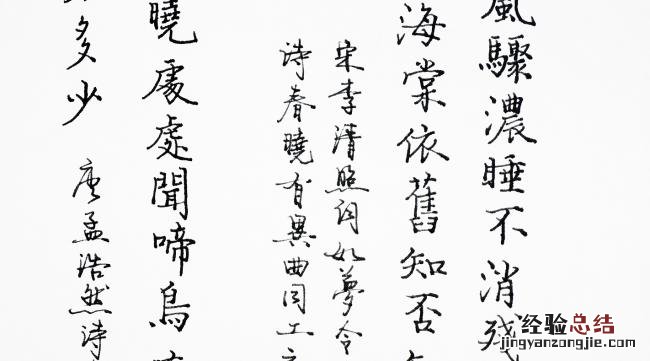 風驟濃睡不消殘
海棠依舊知否
宋李清照詞如夢令
詩春曉有異曲同工
曉處處聞啼鳥
多少
唐孟浩然詩
经验总结
jingyanzongjie.com